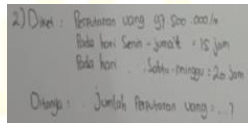 2) Diket : Perputaran uang 97.500.000/m
Pada hari Senin - jumat = 15 jam
Pada hari . . Sabtu - minggu = 20 jam
Ditanya : Jumlah Perputaran uang = ...?